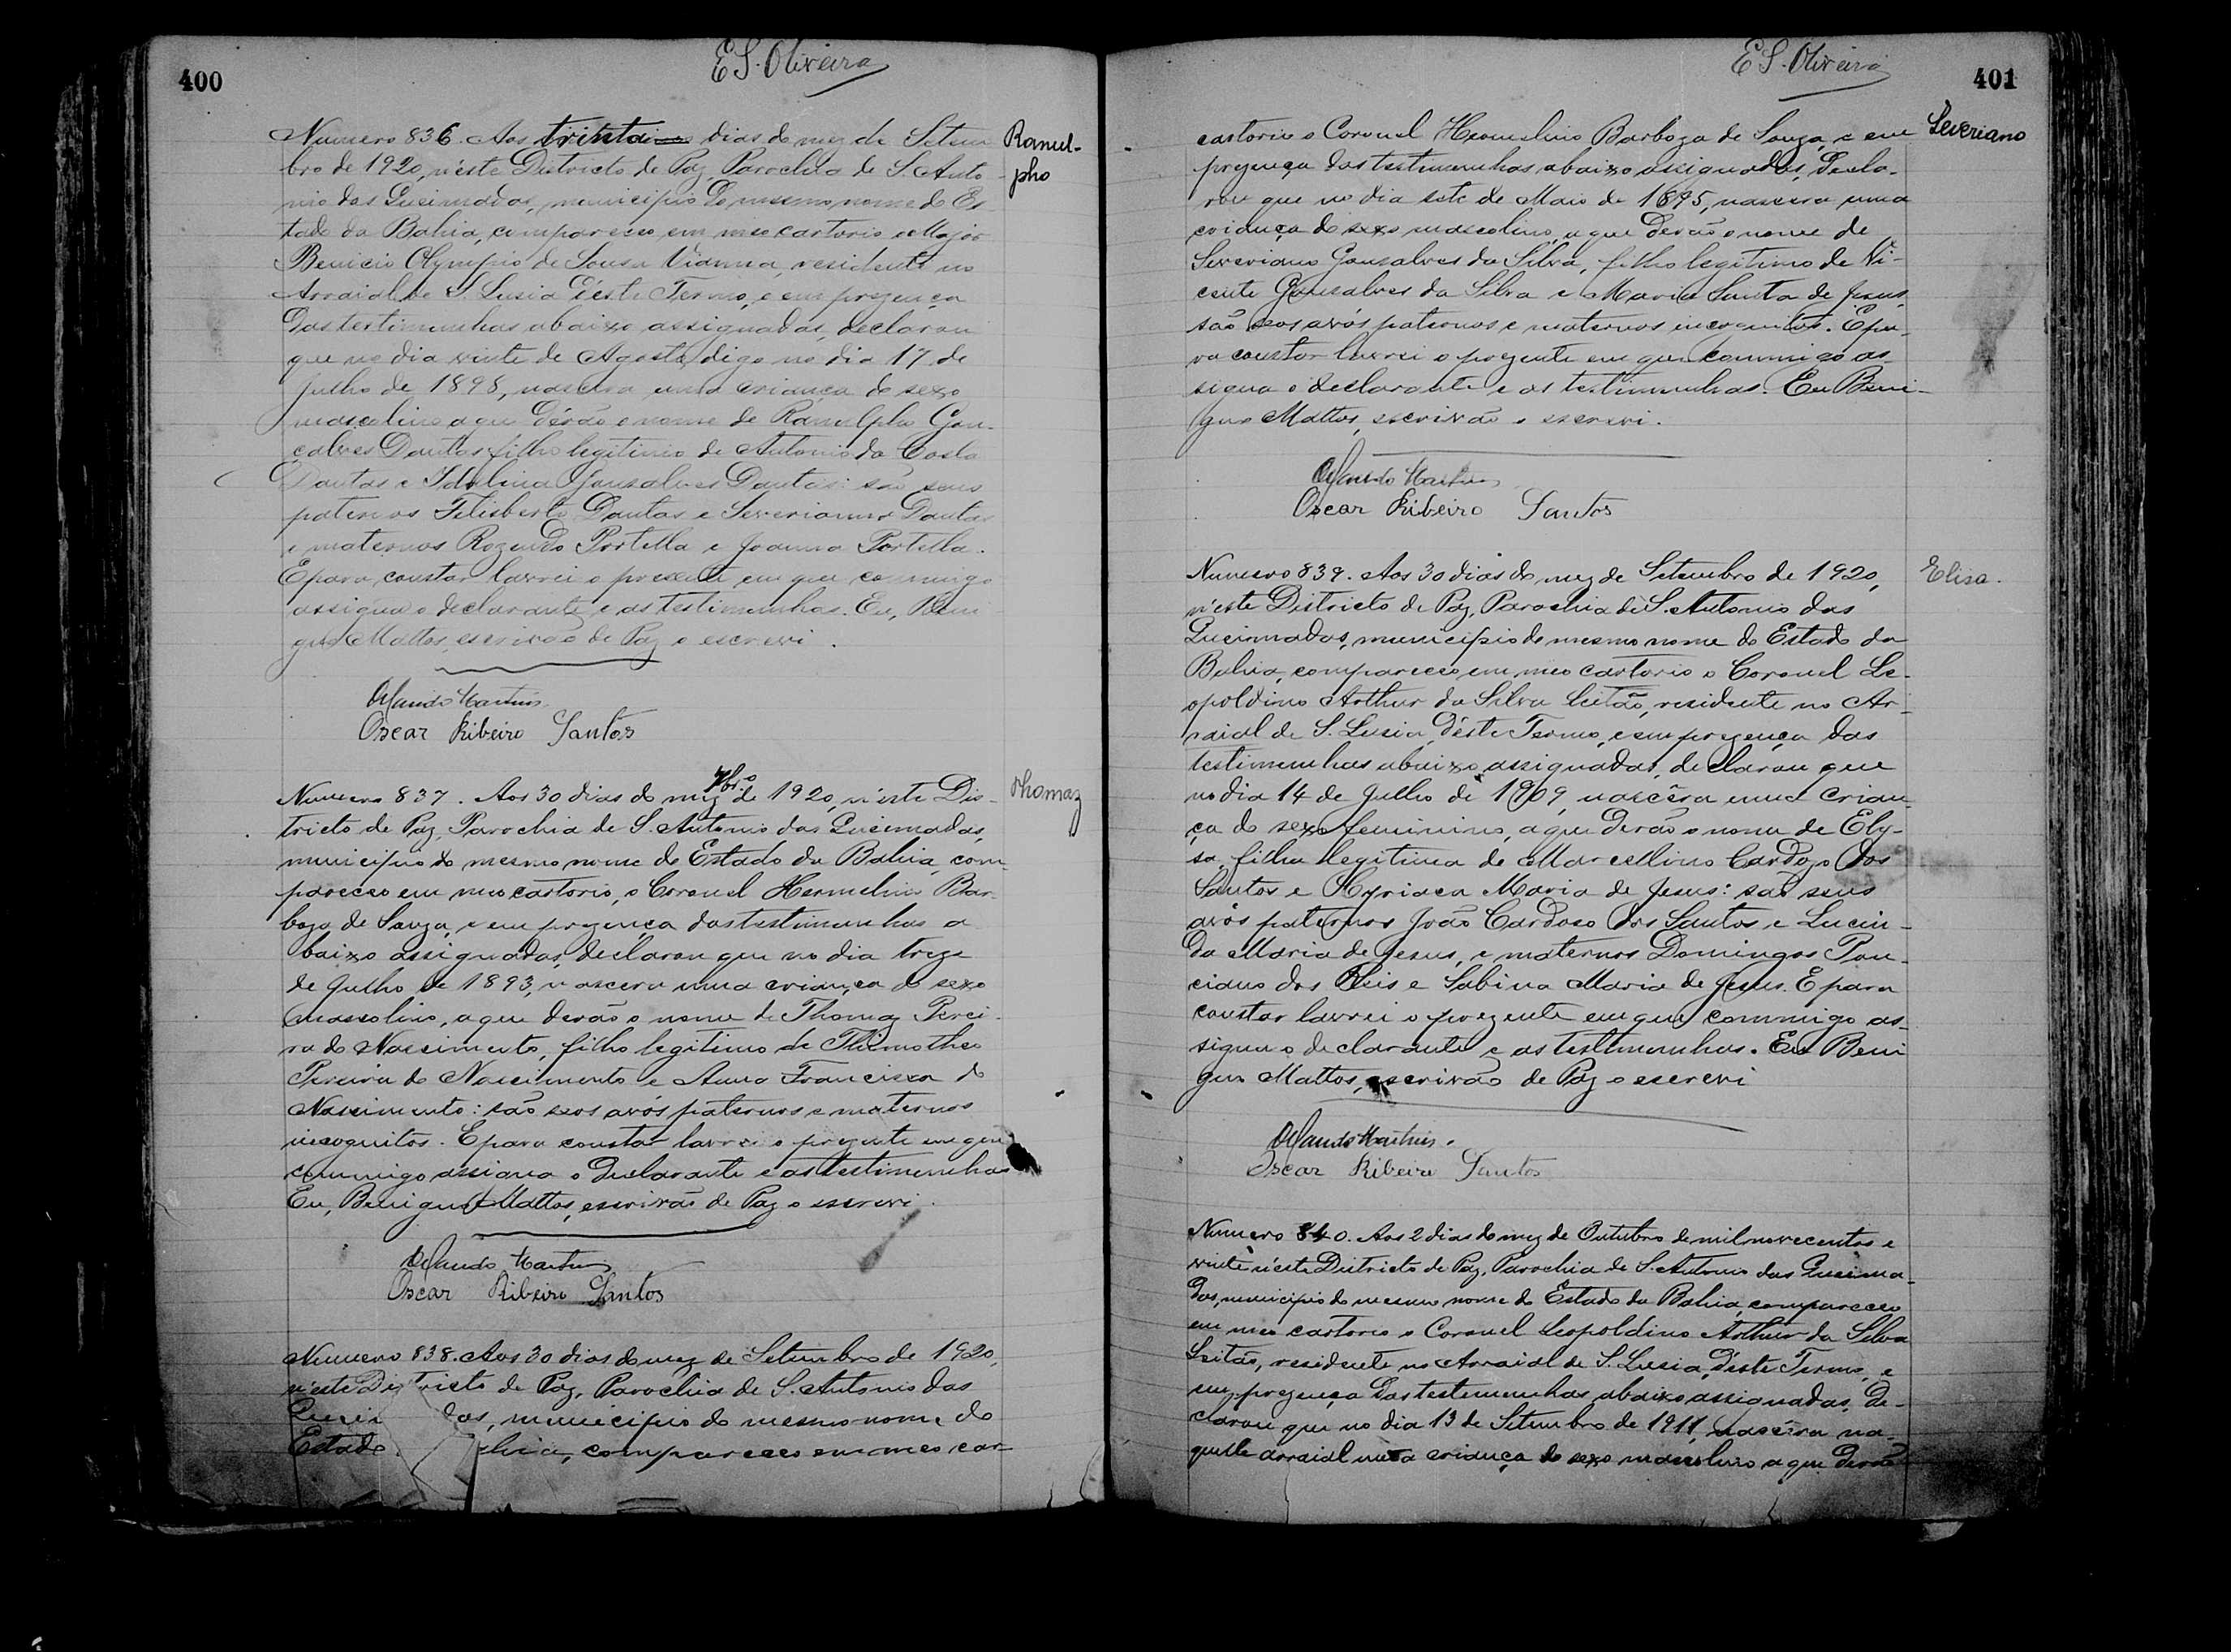 400
E S. Oliveira
Numero 836. Aos trinta dias do mez de Setem
bro de 1920, n'éste Districto de Paz, Parochia de S. Anto-
nio das Queimadas, municipio do mesmo nome do Es
tado da Bahia, compareceo em meo cartorio o Major
Benicio Olympio de Sousa Vianna, residente no
Arraial de S. Lusia d'éste Termo, e em prezença
das testimunhas abaixo assignadas, declarou
que no dia vinte de Agosto, digo no dia 17 de
Julho de 1898, nascera uma criança do sexo
mascolino a que dérão o nome de Ranulpho Gon-
çalves Dantas filho legitimo de Antonio da Costa
Dantas e Idalina Gonsalves Dantas: são seus
paternos Felisberto Dantas e Severianna Dantas
e maternos Rozendo Portella e Joanna Portella.
E para constar lavrei o presente em que commigo
assigna o declarante e as testimunhas. Eu, Beni
gno Mattos, escrivão de Paz o escrevi.
Orlando Martins
Oscar Ribeiro Santos
Ranul-
pho
Numero 837. Aos 30 dias do mez 7bro de 1920, n'éste Dis-
tricto de Paz, Parochia de S. Antonio das Queimadas,
municipio do mesmo nome do Estado da Bahia, com-
pareceo em meo cartorio, o Coronel Hermelino Bar-
boza de Souza, e em prezença das testimunhas a
baixo assignadas, declarou que no dia treze
de Julho de 1893, nascera uma criança do sexo
mascolino, a que derão o nome de Thomaz Perei-
ra do Nascimento, filho legitimo de Thimotheo
Pereira do Nascimento e Anna Francisca do
Nascimento: são seos avós paternos e maternos
incognitos. E para constar lavrei o prezente em que
commigo assigna o declarante e as testimunhas
Eu, Benigno Mattos, escrivão de Paz o escrevi.
Orlando Martins
Oscar Ribeiro Santos
Thomaz
Numero 838. Aos 30 dias do mez de Setembro de 1920,
n'este Districto de Paz, Parochia de S. Antonio das
das, municipio do mesmo nome do
Estado compareceo em meo car-
E S. Oliveira
401
cartorio o Coronel Hermelino Barboza de Souza, e em
prezença das testimunhas abaixo assignadas, decla-
rou que no dia sete de Maio de 1895, nascera uma
criança do sexo mascolino, a que derão o nome de
Severiano Gonsalves da Silva, filho legitimo de Vi-
cente Gonsalves da Silva e Maria Santa de Jesus,
são seos avós paternos e maternos incognitos. E pa-
ra constar lavrei o prezente em que commigo as-
signa o declarante e as testimunhas. Eu Beni-
gno Mattos, escrivão o escrevi.
Orlando Martins
Oscar Ribeiro Santos
Severiano
Numero 839. Aos 30 dias do mez de Setembro de 1920,
n'éste Districto de Paz, Parochia de S. Antonio das
Queimadas, municipio do mesmo nome do Estado da
Bahia, compareceo em meo cartorio o Coronel Le-
opoldino Arthur da Silva Leitão, residente no Ar-
raial de S. Lusia, d'éste Termo, e em prezença das
testimunhas abaixo assignadas, declarou que
no dia 14 de Julho de 1909, nascêra uma crian-
ça do sexo feminino, a que derão o nome de Ely-
sa, filha legitima de Marcellino Cardozo dos
Santos e Maria de Jesus: são seus
avós paternos João Cardoso dos Santos e Lucin-
da Maria de Jesus, e maternos Domingos Pon-
ciano dos Reis e Sabina Maria de Jesus. E para
constar lavrei o prezente em que commigo as-
signa o declarante e as testimunhas. Eu Beni
gno Mattos, escrivão de Paz o escrevi
Orlando Martins.
Oscar Ribeiro Santos
Elisa.
Numero 840. Aos 2 dias do mez de Outubro de mil novecentos e
vinte n'éste Districto de Paz, Parochia de S. Antonio das Queima-
das, municipio do mesmo nome do Estado da Bahia, compareceo
em meo cartorio o Coronel Leopoldino Arthur da Silva
Leitão, residente no Arraial de S. Lusia, d'éste Termo, e
em prezença das testemunhas abaixo assignadas, de-
clarou que no dia 13 de Setembro de 1911, nascêra na-
quelle arraial uma criança do sexo mascolino a que derão